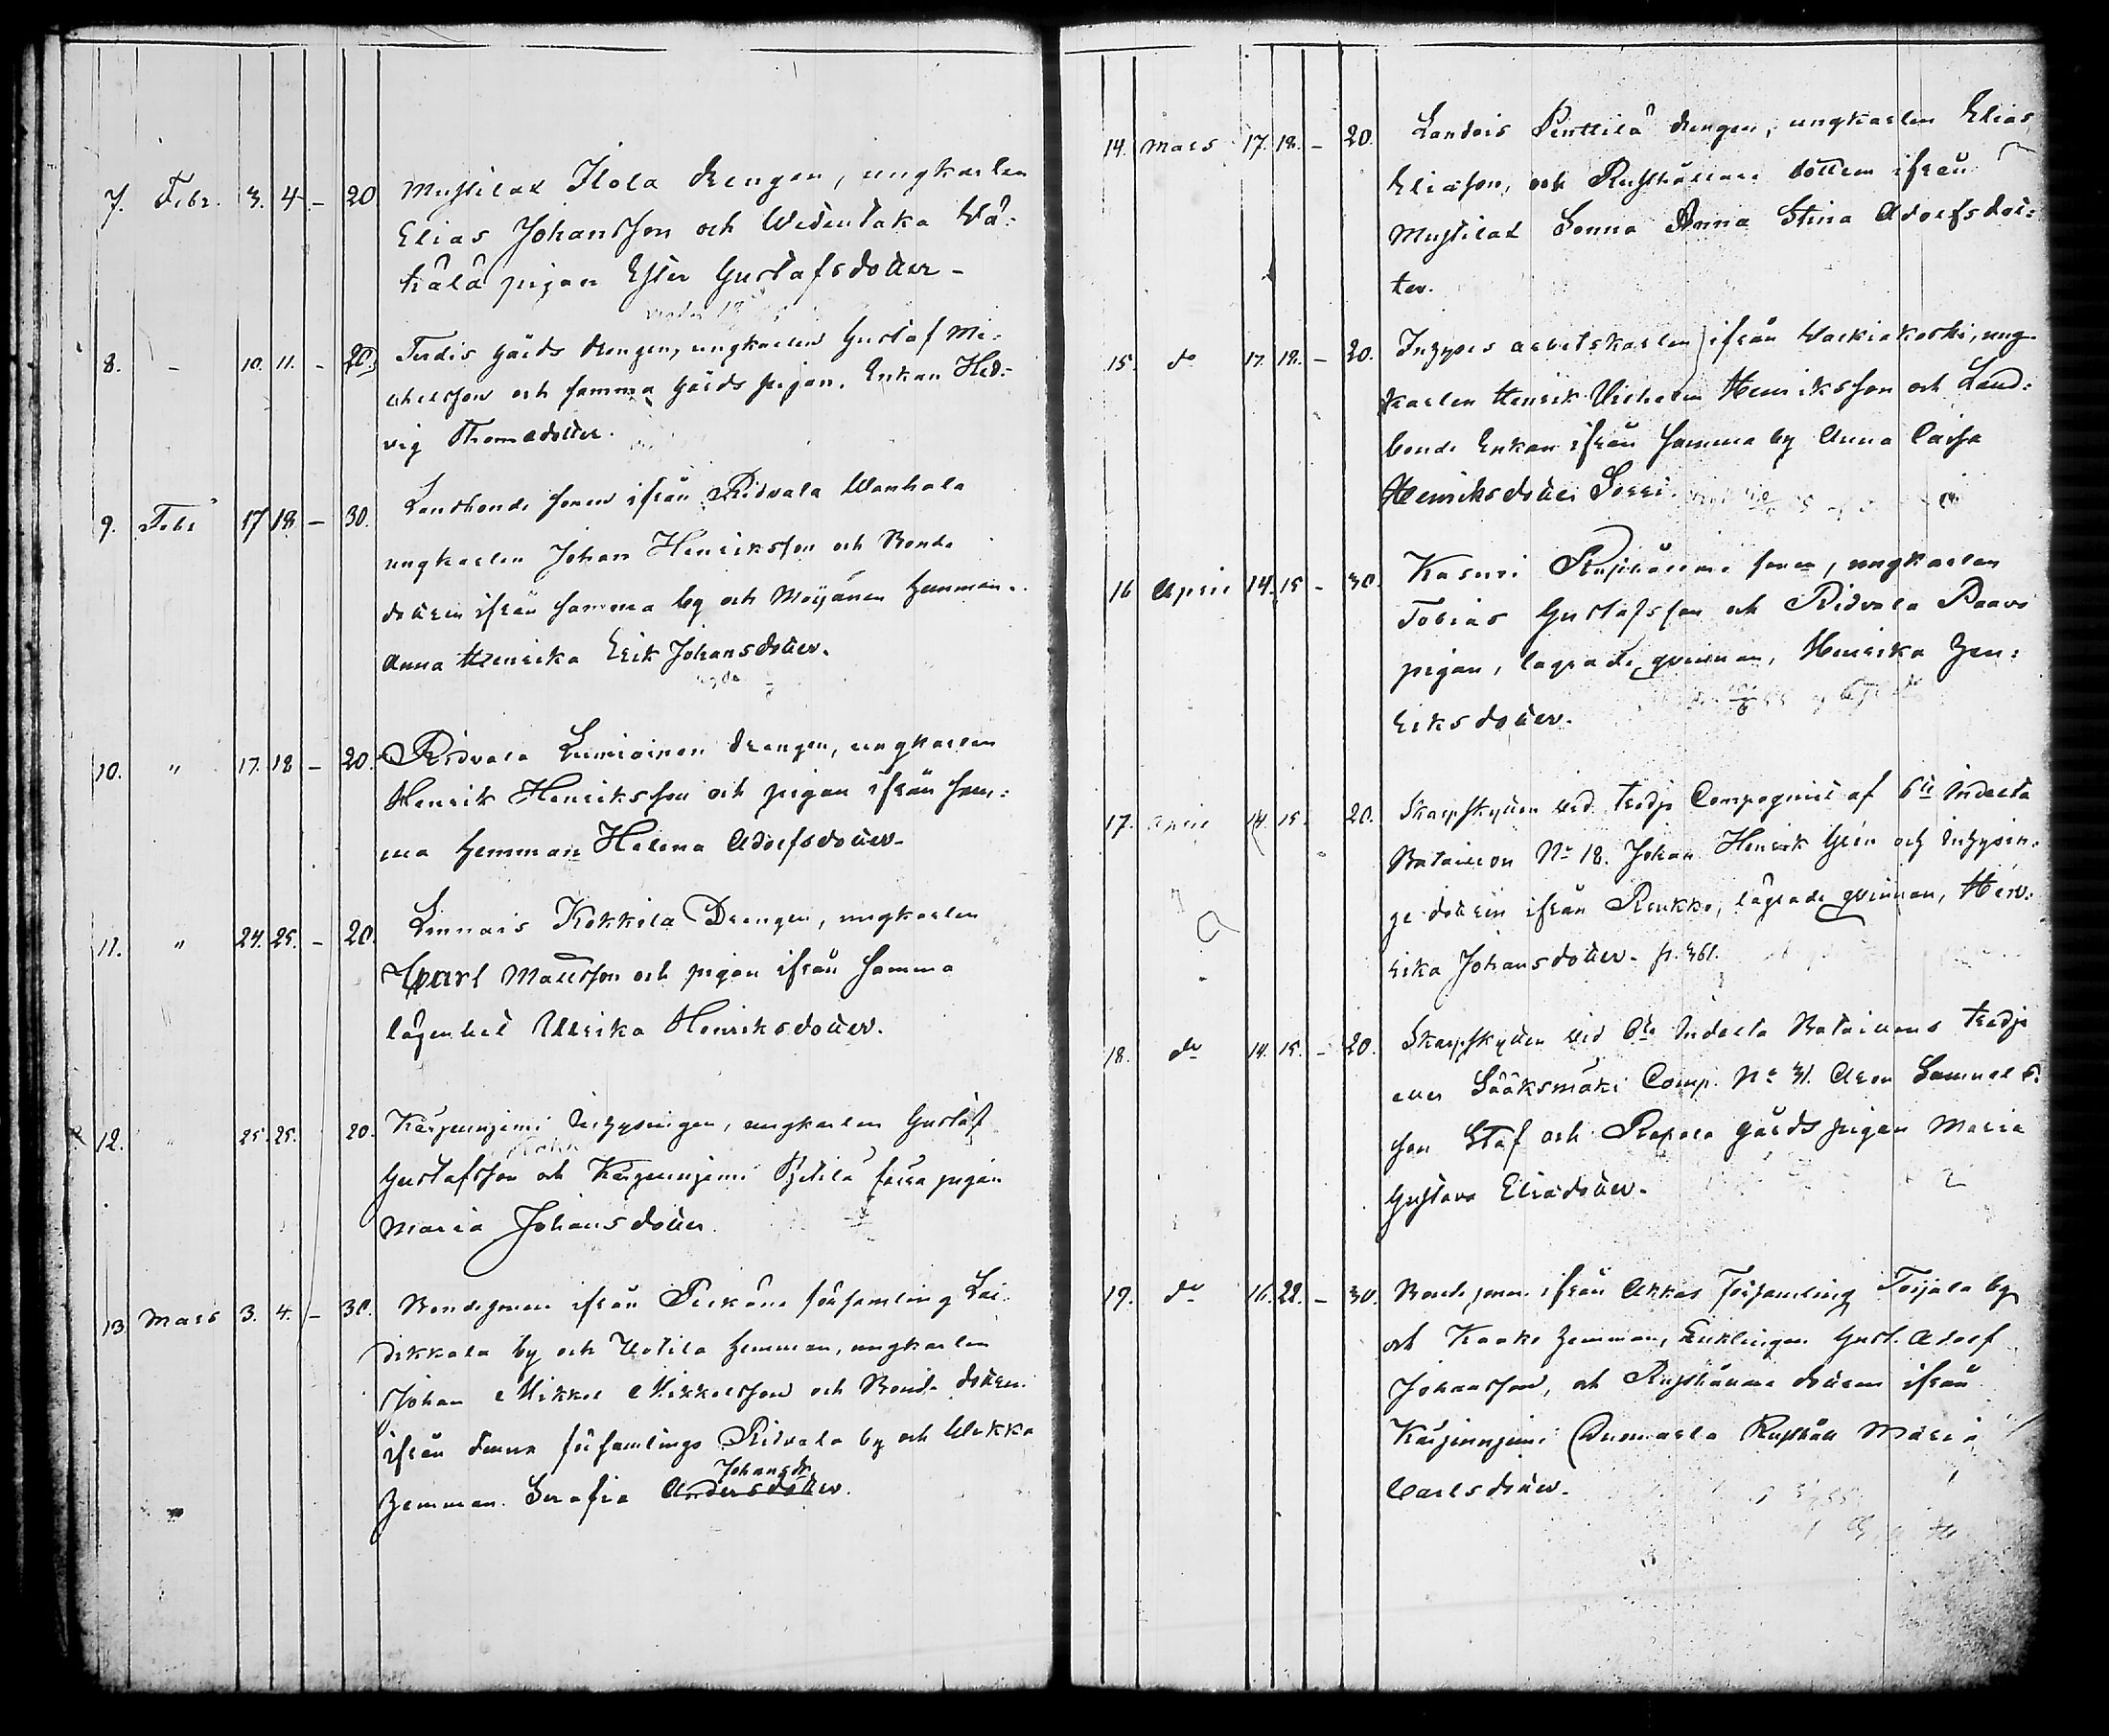 7. Febr. 3. 4. - 20 Mustilax Ilola drengen, ungkarlen
Elias Johansson och Wedentaka
pigan Ester Gustafsdotter -
8. - 10. 11. - 20. Terdis gårds drengen, ungkarlen Gustaf Mi-
chelsson och samma gårds pigan. Enkan Hed-
vig Thomedotter.
9. Febr 17 18 - 30. Landbonde sonen ifrån Ridvala Wanhala
ungkarlen Johan Henriksson och Bonde
dottren ifrån samma by och Moijanen hemman.
Anna Henrika Erik Johansdotter.
10. " 17. 18 - 20. Ridvala Lumiainen drengen, ungkarlen
Henrik Henriksson och pigan ifrån sam:
ma hemman Helena Adolfsdotter-
11. " 24. 25. - 20. Linnais Kokkila Drengen, ungkarlen
Carl Mattsson och pigan ifrån samma
lägenhet Ulrika Henriksdotter.
12. " 25. 25. 20. Kärjenniemi Inhysingen, ungkarlen Gustaf
Gustafsson och Kärjenniemi pigan
Maria Johansdotter.
13 Mars 3. 4. - 30. Bondesonen ifrån Pelkäne församling Lai-
dikkala by och Uotila hemman, ungkarlen
Johan Mikkel Mikkelsson och Bonde dottren
ifrån denna församlings Ridvala by och Wekka
Johansdr
hemman. Serafia Andersdotter.
14. Mars 17. 18. - 20. Landois Penttilä drengen, ungkarlen Elias
Eliasson, och Rusthållare dottren ifrån
Mustilax Sonna Anna Stina Adolfsdot:
ter.
15. do 17. 18. - 20. Inhyses arbetskarlen ifrån Walkiakoski, ung-
karlen Henrik Wilhelm Henriksson och Land:
bonde Enkan ifrån samma by Anna Caisa
Henriksdotter Sorri.
16 April 14. 15 - 30. Kasuri Rusthållare sonen, ungkarlen
Tobias Gustafsson och Ridvala Paavo
pigan, lägrade qvinnan, Henrika Hen:
riksdotter.
17. April 14. 15. 20. Skarpskytten vid tredje Compagniet af 6te Indelta
Bataillon No 18. Johan Henrik Glén och inhysin-
ge dottren ifrån Roukko, lägrade qvinnan, Hen:
rika Johansdotter. p. 361.
18. do 14. 15. - 20. Skarpskytten vid 6te Indelta Bataillons tredje
eller Sääksmäki Comp. No 31. Aron Samuels
son Staf och Rapola gårds pigan Maria
Gustava Eliædotter.
19. do 16. 22. - 30. Bonde sonen ifrån Akkas församling Toijala by
och Kaake hemman, Enklingen Gust. Adolf
Johansson, och Rusthållare dottren ifrån
Kärjenniemi Anomaela Rusthåll Maria
Carlsdotter.